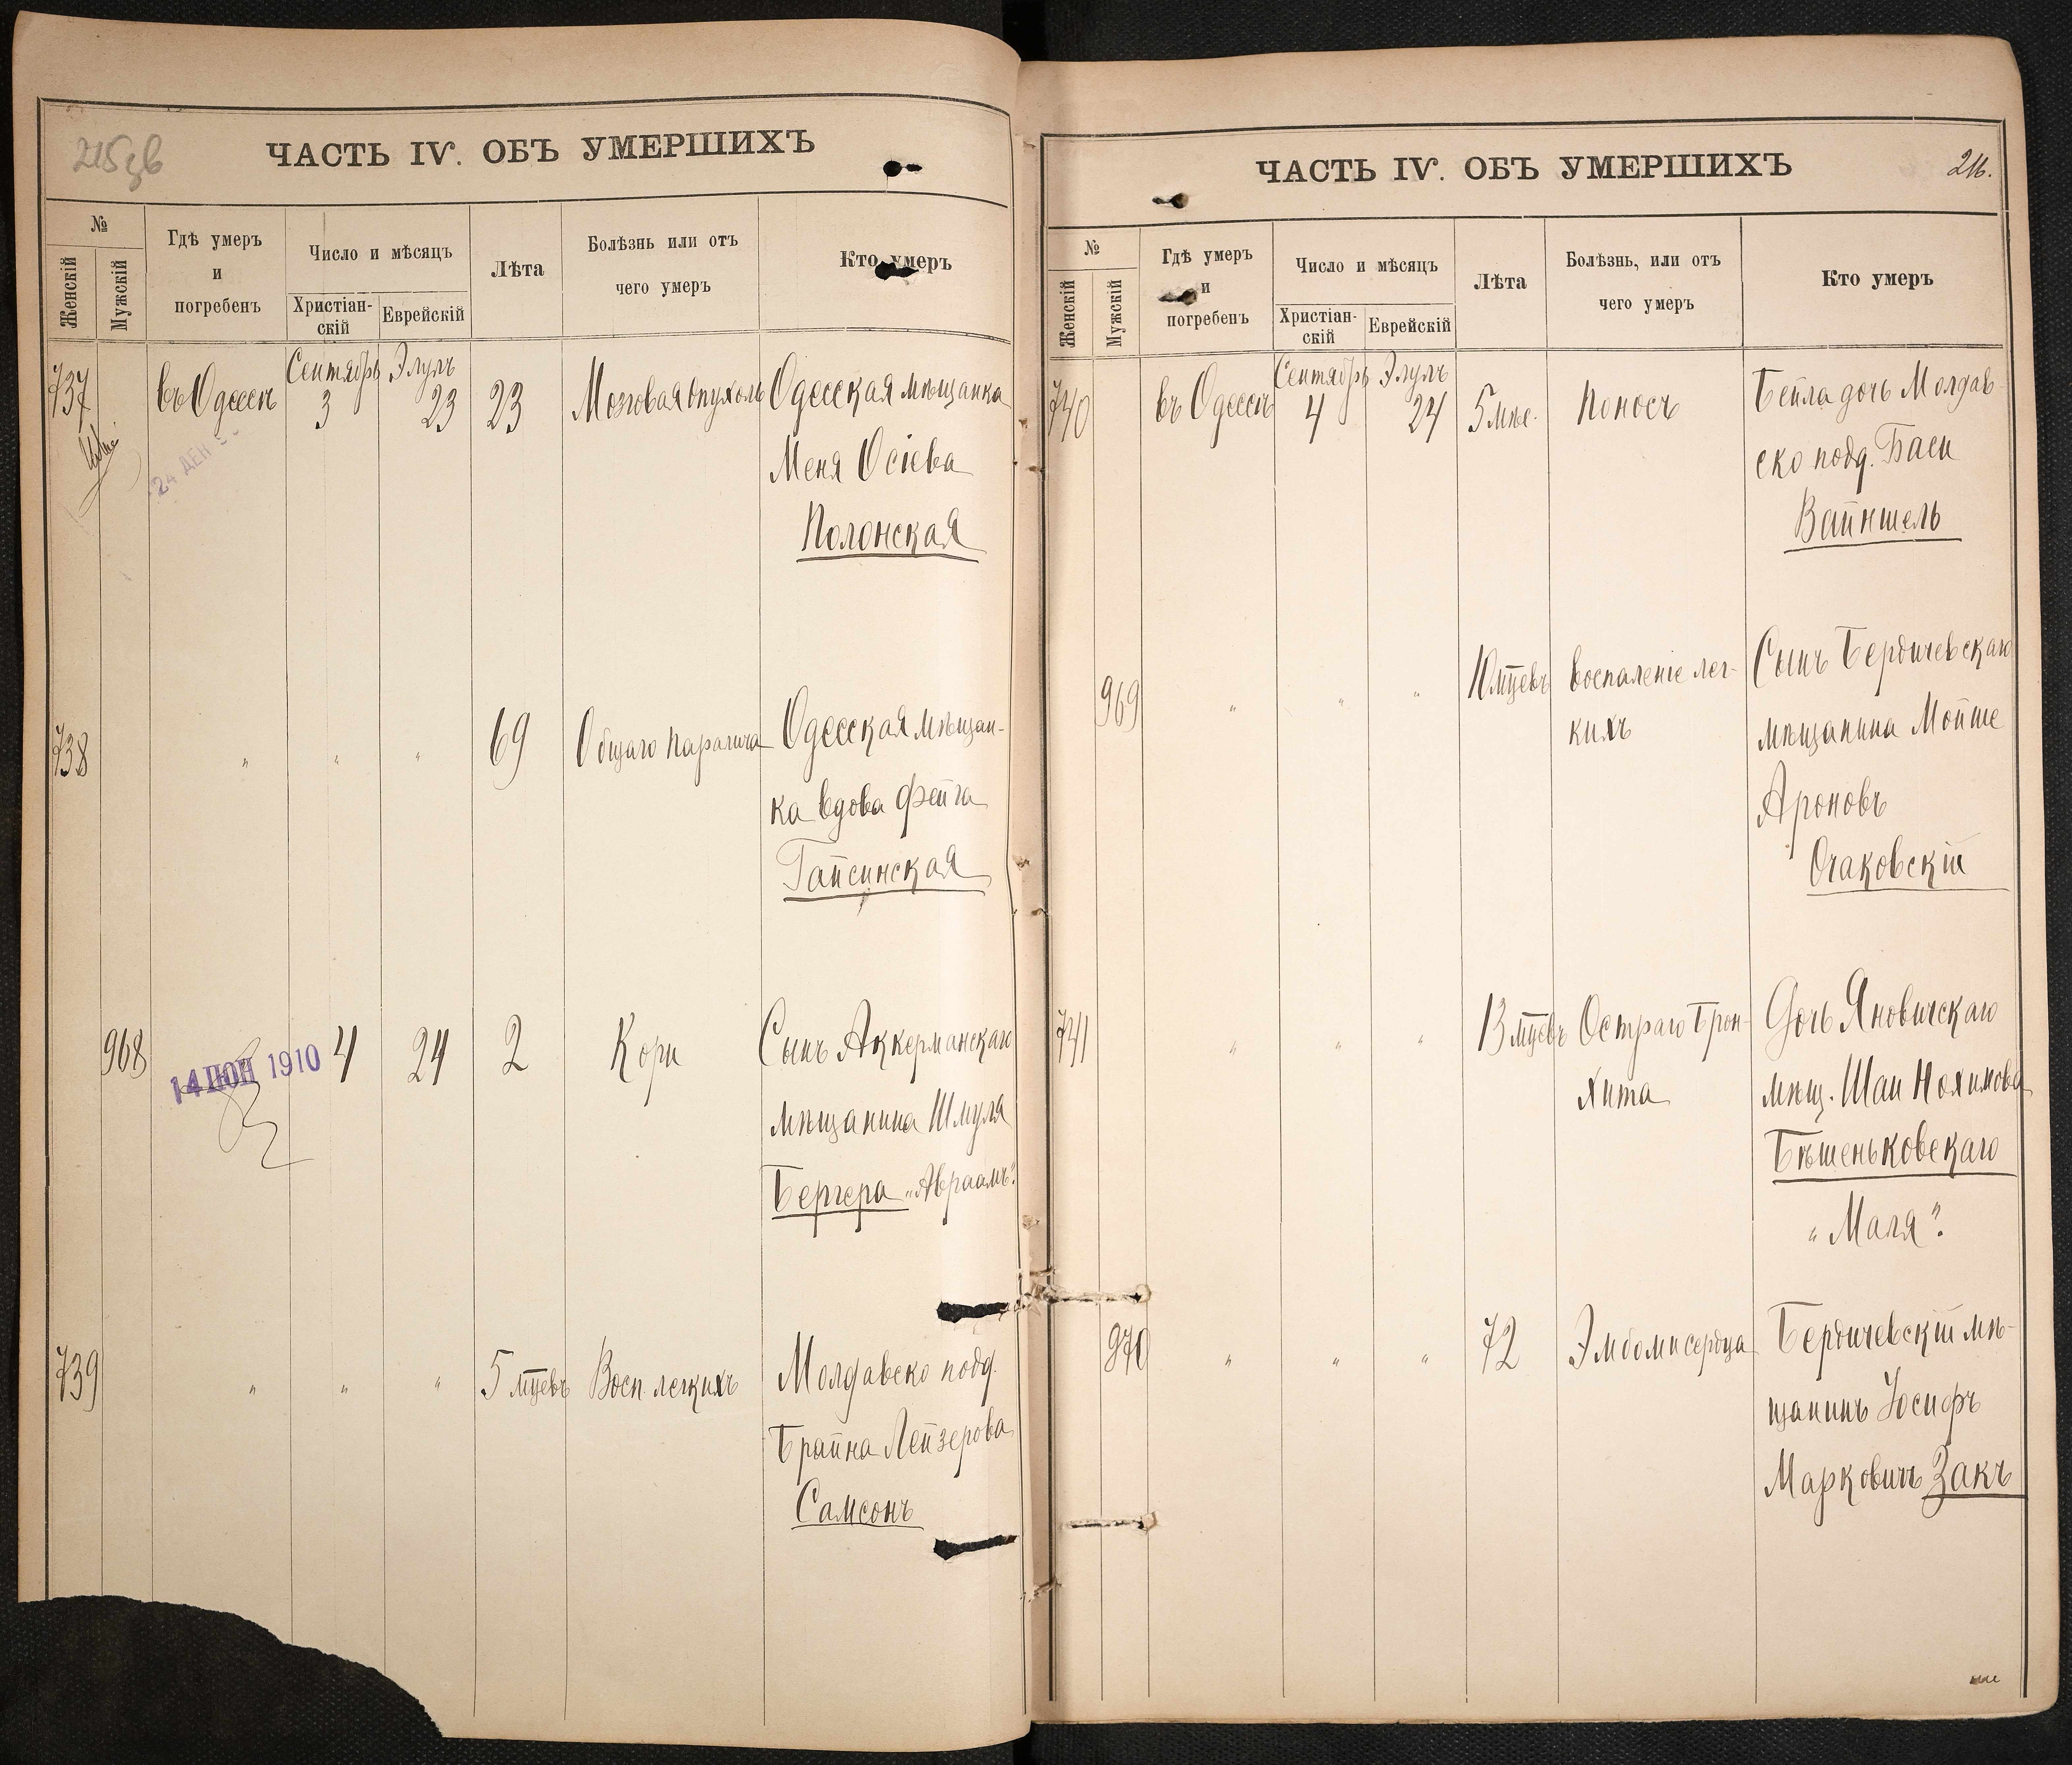 ЧАСТЬ IV. ОБЪ УМЕРШИХЪ
№
Женскій
Мужскій
Гдѣ умеръ
и
погребенъ
Число и мѣсяцъ
Христіан-
скій
Еврейскій
Лѣта
Болѣзнь или отъ
чего умеръ
Кто умеръ
737 въ Одессѣ Сентябрь 3 Элулъ 23 23 Мозговая опухоль Одесская мѣщанка
Меня Осіева
Полонская
24 ДЕК
738 " " " 69 Общаго паралича Одесская мѣщан-
ка вдова Фейга
Гайсинская
968 14 ІЮН 1910 4 24 2 Кори Сынъ Аккерманскаго
мѣщанина Шмуля
Бергера „Авраамъ“
739 " " " 5 мцевъ Восп. легкихъ Молдавско подд.
Брайна Лейзерова
Самсонъ
ЧАСТЬ IV. ОБЪ УМЕРШИХЪ 216.
№
Женскій
Мужскій
Гдѣ умеръ
и
погребенъ
Число и мѣсяцъ
Христіан-
скій
Еврейскій
Лѣта
Болѣзнь, или отъ
чего умеръ
Кто умеръ
740 въ Одессѣ Сентябрь 4 Элулъ 24 5 мѣс. Поносъ Бейла дочь Молдав-
ско подд. Баси
Вайншель
969 " " " 10 мцевъ воспаленіе лег- Сынъ Бердичевскаго
кихъ мѣщанина Мойше
Ароновъ
Очаковскій
741 " " " 13 мцевъ Остраго брон- Дочь Яновичскаго
хита мѣщ. Шаи Нохимова
Бѣшеньковскаго
„Маля“
970 " " " 72 Эмболи сердца Бердичевскій мѣ-
щанинъ Іосифъ
Марковичъ Закъ